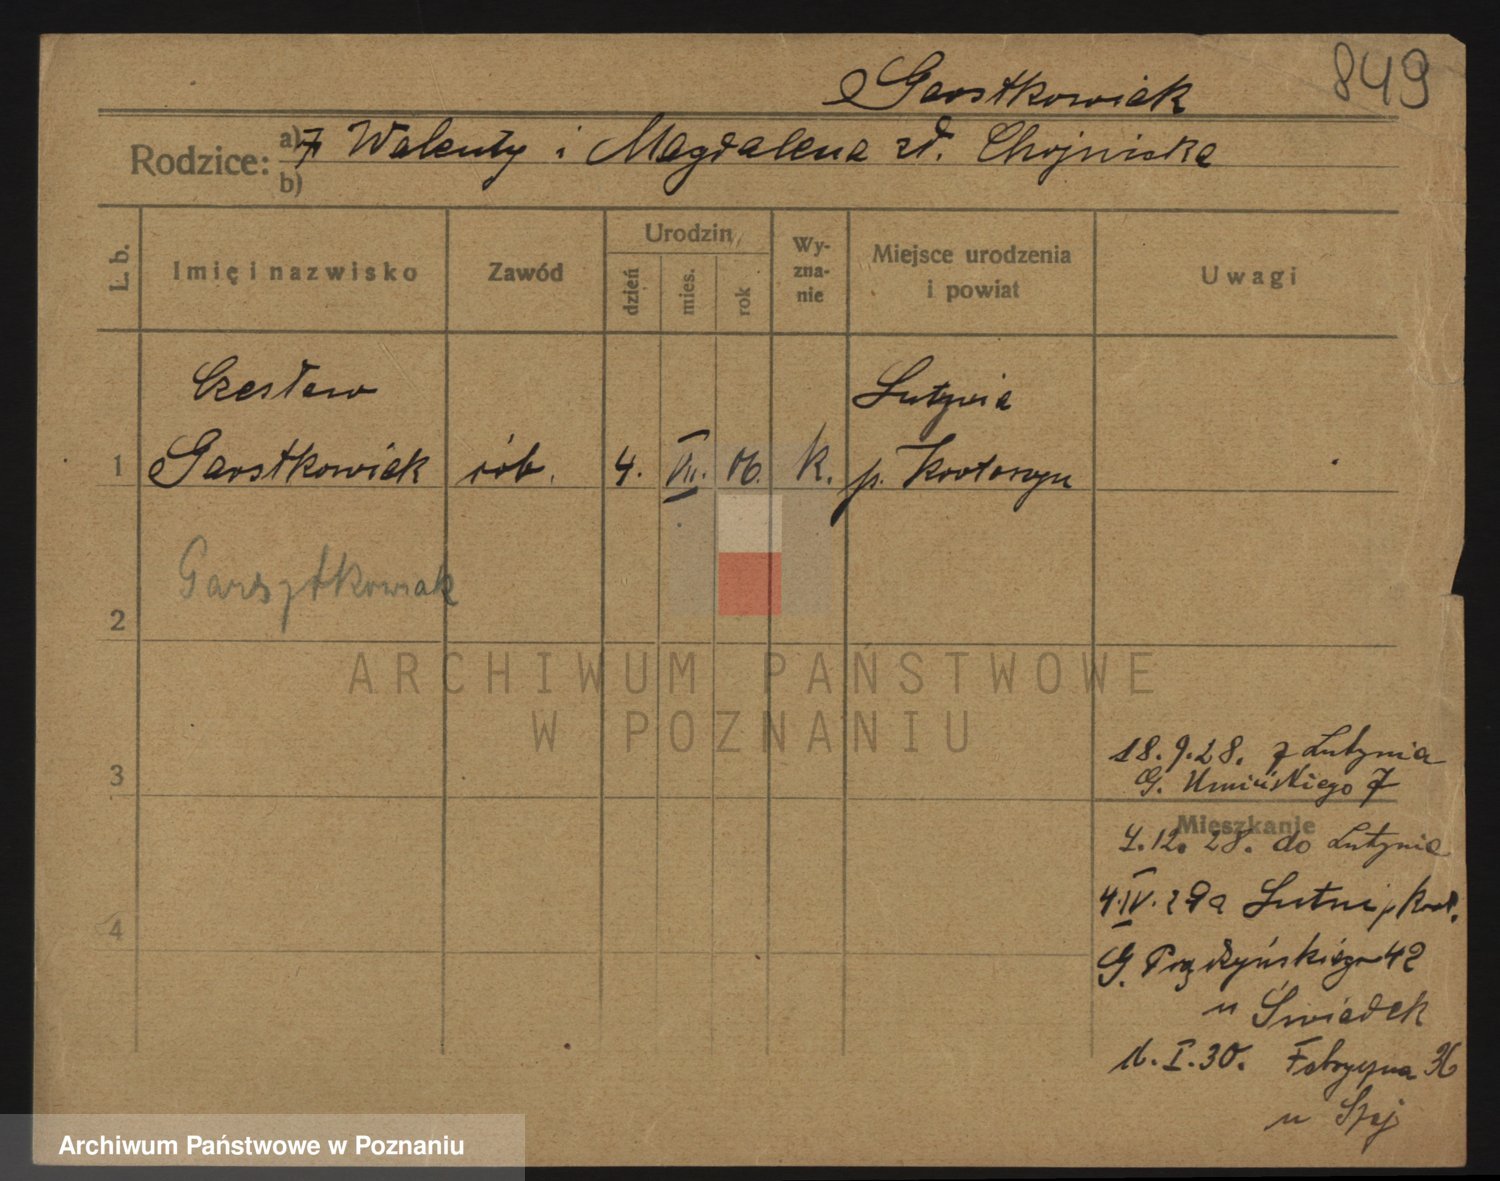 849
Garstkowiak
Rodzice: a) Walenty i Magdalena zd. Chojnicka
b)
L. b.
Imię i nazwisko
Zawód
Urodzin
dzień
mies.
rok
Wy-
zna-
nie
Miejsce urodzenia
i powiat
Uwagi
Czesław
Lutynia
1 Garstkowiak rób. 4. VII. 06. k. p. Krotoszyn
Garsztkowiak
2
3
18.9.28. z Lutynia
G. Umińskiego 7
Mieszkanie
4.12.28. do Lutynia
4
4.IV.29 a p Krot.
G. Prądzyńskiego 42
u Świadek
I.30. Fabryczna 36
u
ARCHIWUM PAŃSTWOWE
W POZNANIU
Archiwum Państwowe w Poznaniu